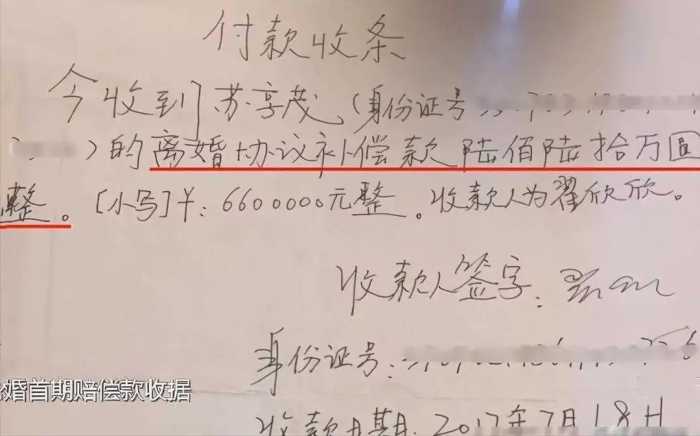 付款收条
今收到苏享茂(身份证号
)的离婚协议补偿款陆佰陆拾万圆
整。[小写]¥:6600000元整。收款人为翟欣欣。
收款人签字:
身份证号:
婚首期赔偿款收据
收款日期:2017年7月18日